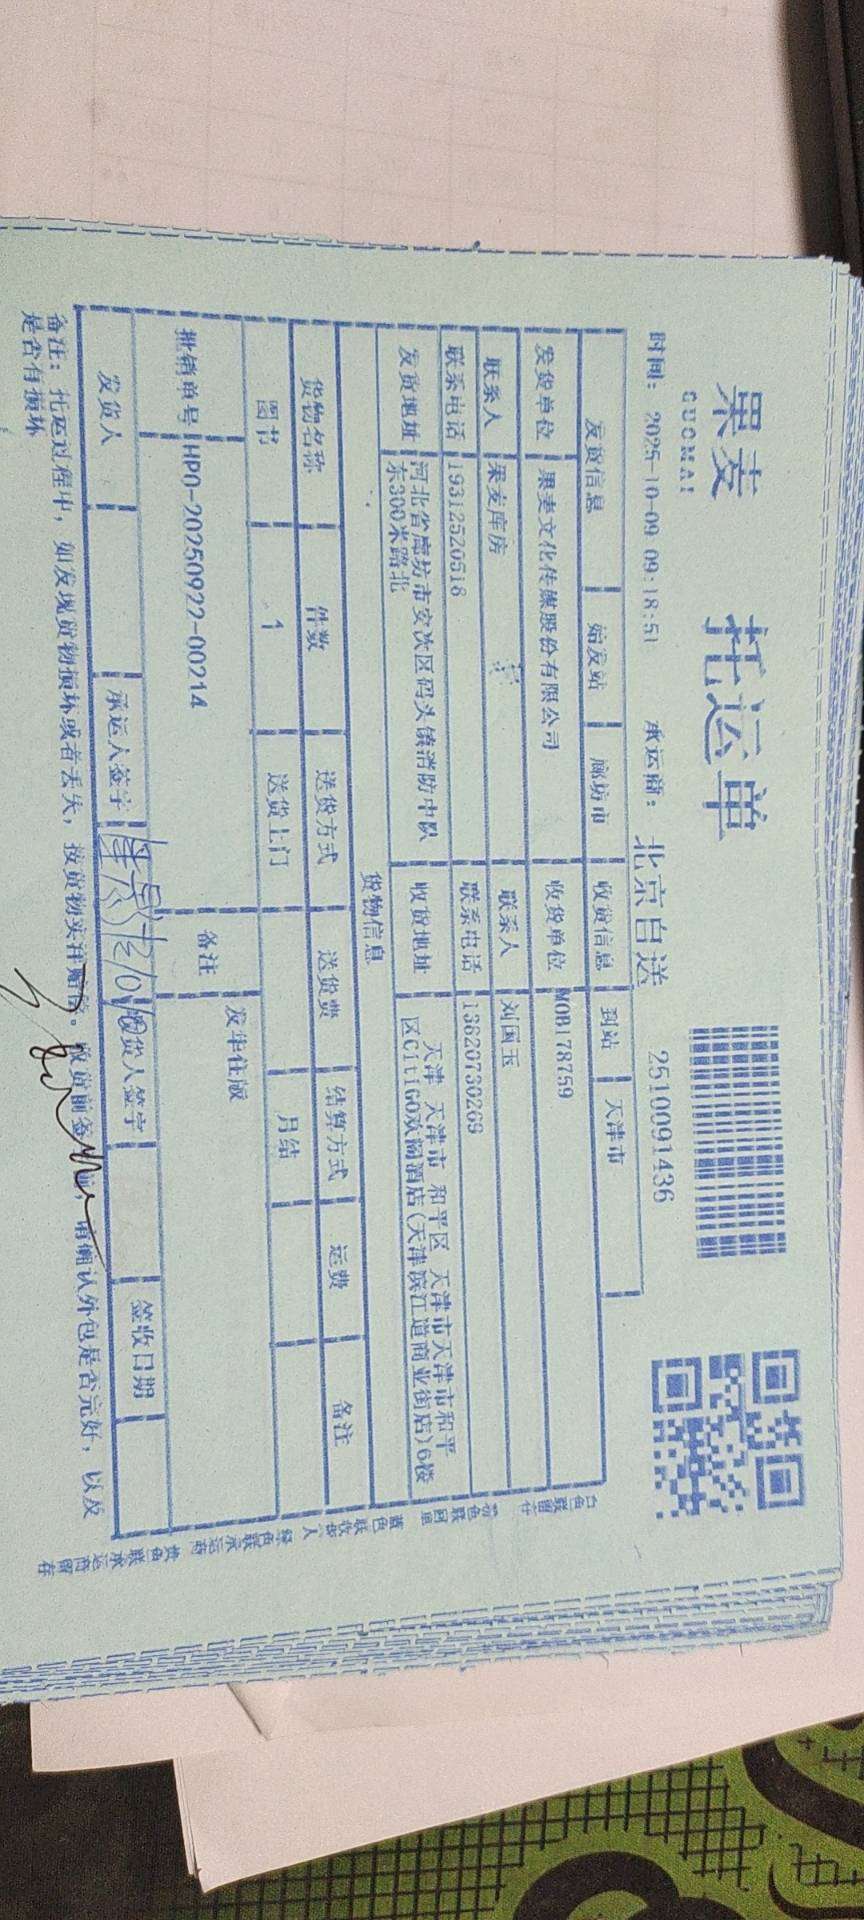 果麦
GUOMAI
托运单
时间： 2025-10-09 09:18:51 承运商： 北京自送 2510091436
发货信息 始发站 廊坊市 收货信息 到站 天津市
发货单位 果麦文化传媒股份有限公司 收货单位 MOB178759
联系人 果麦库房 联系人 刘国玉
联系电话 19312520518 联系电话 13820730269
发货地址 河北省廊坊市安次区码头镇消防中队东300米路北 收货地址 天津 天津市 和平区 天津市天津市和平区CitiGO欢阁酒店(天津滨江道商业街店)6楼
货物信息
货物名称 件数 送货方式 送货费 结算方式 运费 备注
图书 1 送货上门 月结
批销单号 HPO-20250922-00214 备注 发华住版
发货人 承运人签字 收货人签字 签收日期
备注：托运过程中，如发现货物损坏或者丢失，按货物实洋赔偿。收货前签 请确认外包是否完好，以及
是否有损坏
白色联留存 粉色联回单 蓝色联收货人 绿色联承运商 黄色联承运商留存